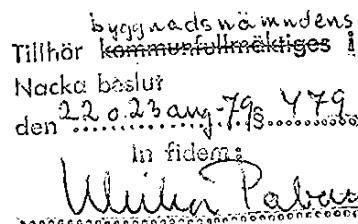 byggnadsnämndens
Tillhör kommunfullmäktiges i
Nacka beslut
den 22 o. 23 aug -79 § 479
In fidem:
Ulrika